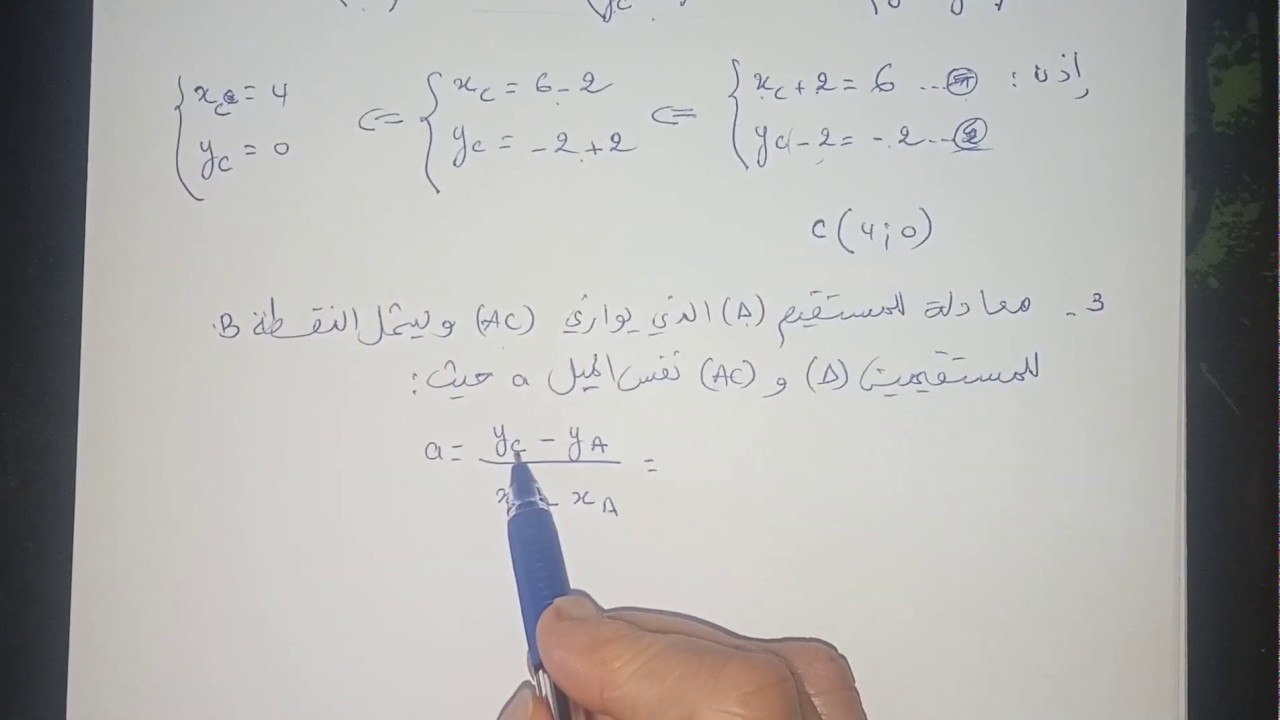 إذن : { x_C + 2 = 6 ... ① <= { x_C = 6 - 2 <= { x_C = 4
{ y_C - 2 = -2 ... ② { y_C = -2 + 2 { y_C = 0
C (4 ; 0)
3 - معادلة المستقيم (Δ) الذي يوازي (AC) ويشمل النقطة B.
للمستقيمين (Δ) و (AC) نفس الميل a حيث :
a = (y_C - y_A) / (x_C - x_A) =